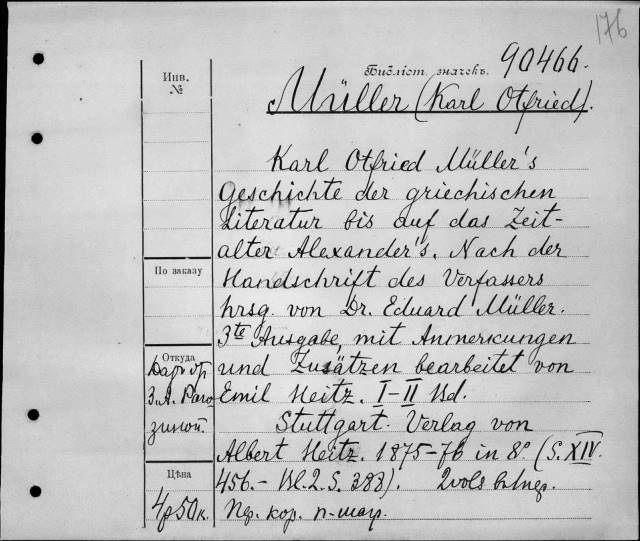 176
Библіот. значекъ. 90466.
Müller (Karl Otfried).
Karl Otfried Müller's
Geschichte der griechischen
Literatur bis auf das Zeit-
alter Alexander's. Nach der
Handschrift des Verfassers
hrsg. von Dr. Eduard Müller.
3te Ausgabe, mit Anmerkungen
und Zusätzen bearbeitet von
Emil Heitz. I-II Bd.
Stuttgart. Verlag von
Albert Heitz. 1875-76 in 8° (S. XIV.
456. - Bd. 2. S. 388). 2 vols
Пер. кор.
Инв.
№
По заказу
Откуда
Даръ отъ
З. А. Раго
зиной.
Цѣна
4р 50к.